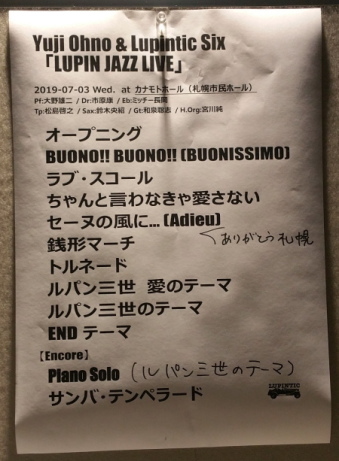 Yuji Ohno & Lupintic Six
「LUPIN JAZZ LIVE」
2019-07-03 Wed. at カナモトホール（札幌市民ホール）
Pf:大野雄二 / Dr:市原康 / Eb:ミッチー長岡
Tp:松島啓之 / Sax:鈴木央紹 / Gt:和泉聡志 / H.Org:宮川純
オープニング
BUONO!! BUONO!! (BUONISSIMO)
ラブ・スコール
ちゃんと言わなきゃ愛さない
セーヌの風に... (Adieu)
ありがとう札幌
銭形マーチ
トルネード
ルパン三世 愛のテーマ
ルパン三世のテーマ
END テーマ
【Encore】
Piano Solo (ルパン三世のテーマ)
サンバ・テンペラード
LUPINTIC